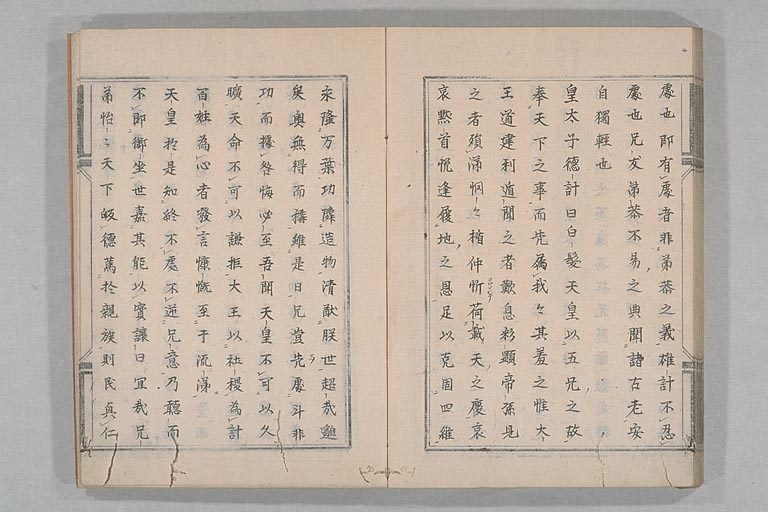 處也即有處者非弟恭之義雄計不忍
處也兄友弟恭不易之典聞諸古老安
自獨輕也
皇太子億計曰白髮天皇以吾兄之故
奉天下之事而先屬我々其羞之惟大
王道建利遁聞之者歎息彰顯帝孫見
之者殞涕惘々搢紳忻荷戴天之慶哀
哀黔首悅逢履地之恩是以克固四維
永隆万葉功隣造物清猷映世超哉邈
矣粤無得而稱雖是曰兄豈先處乎非
功而據咎悔必至吾聞天皇不可以久
曠天命不可以謙拒大王以社稷為計
百姓為心者發言慷慨至于流涕
天皇於是知終不處不逆兄意乃聽而
不即御坐世嘉其能以實讓曰宜哉兄
弟怡々天下皈德篤於親族則民興仁